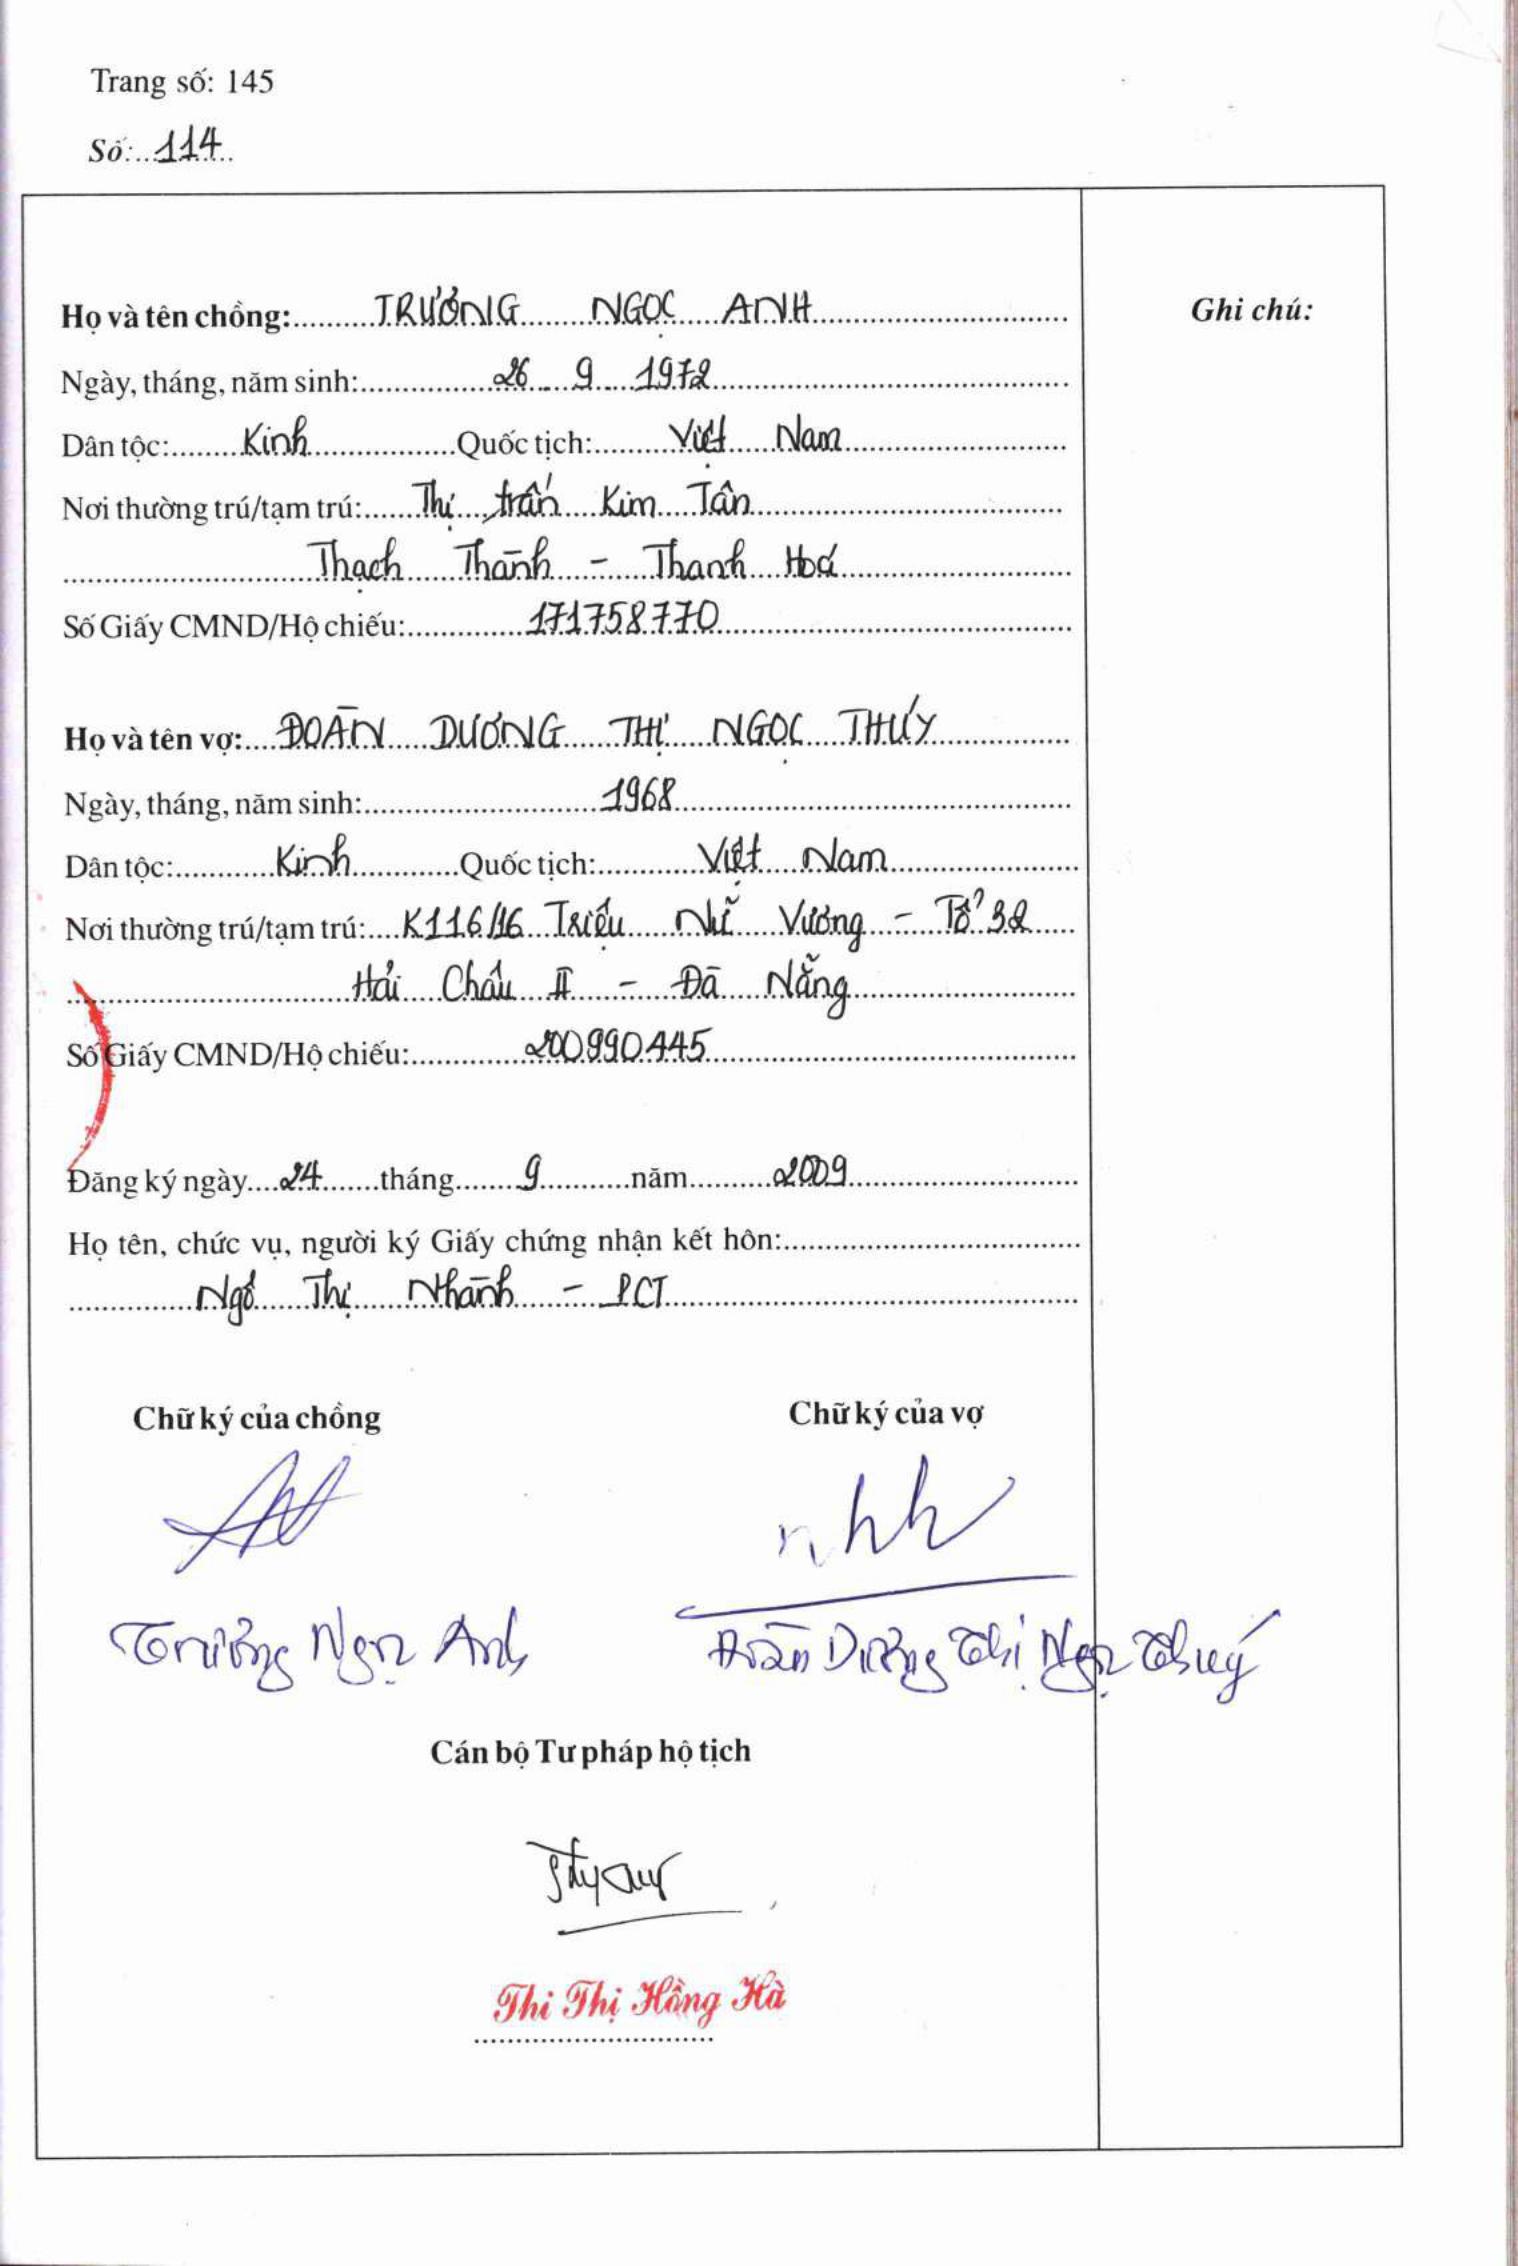 Trang số: 145
Số: 114
Họ và tên chồng: TRƯƠNG NGỌC ANH
Ghi chú:
Ngày, tháng, năm sinh: 26 9 1972
Dân tộc: Kinh Quốc tịch: Việt Nam
Nơi thường trú/tạm trú: Thị trấn Kim Tân
Thạch Thành - Thanh Hoá
Số Giấy CMND/Hộ chiếu: 171758770
Họ và tên vợ: ĐOÀN DƯƠNG THỊ NGỌC THÚY
Ngày, tháng, năm sinh: 1968
Dân tộc: Kinh Quốc tịch: Việt Nam
Nơi thường trú/tạm trú: K116/16 Triệu Nữ Vương - Tổ 32
Hải Châu II - Đà Nẵng
Số Giấy CMND/Hộ chiếu: 200990445
Đăng ký ngày 24 tháng 9 năm 2009
Họ tên, chức vụ, người ký Giấy chứng nhận kết hôn:
Ngô Thị Nhành - PCT
Chữ ký của chồng Chữ ký của vợ
Trương Ngọc Anh Đoàn Dương Thị Ngọc Thuý
Cán bộ Tư pháp hộ tịch
Thi Thị Hồng Hà